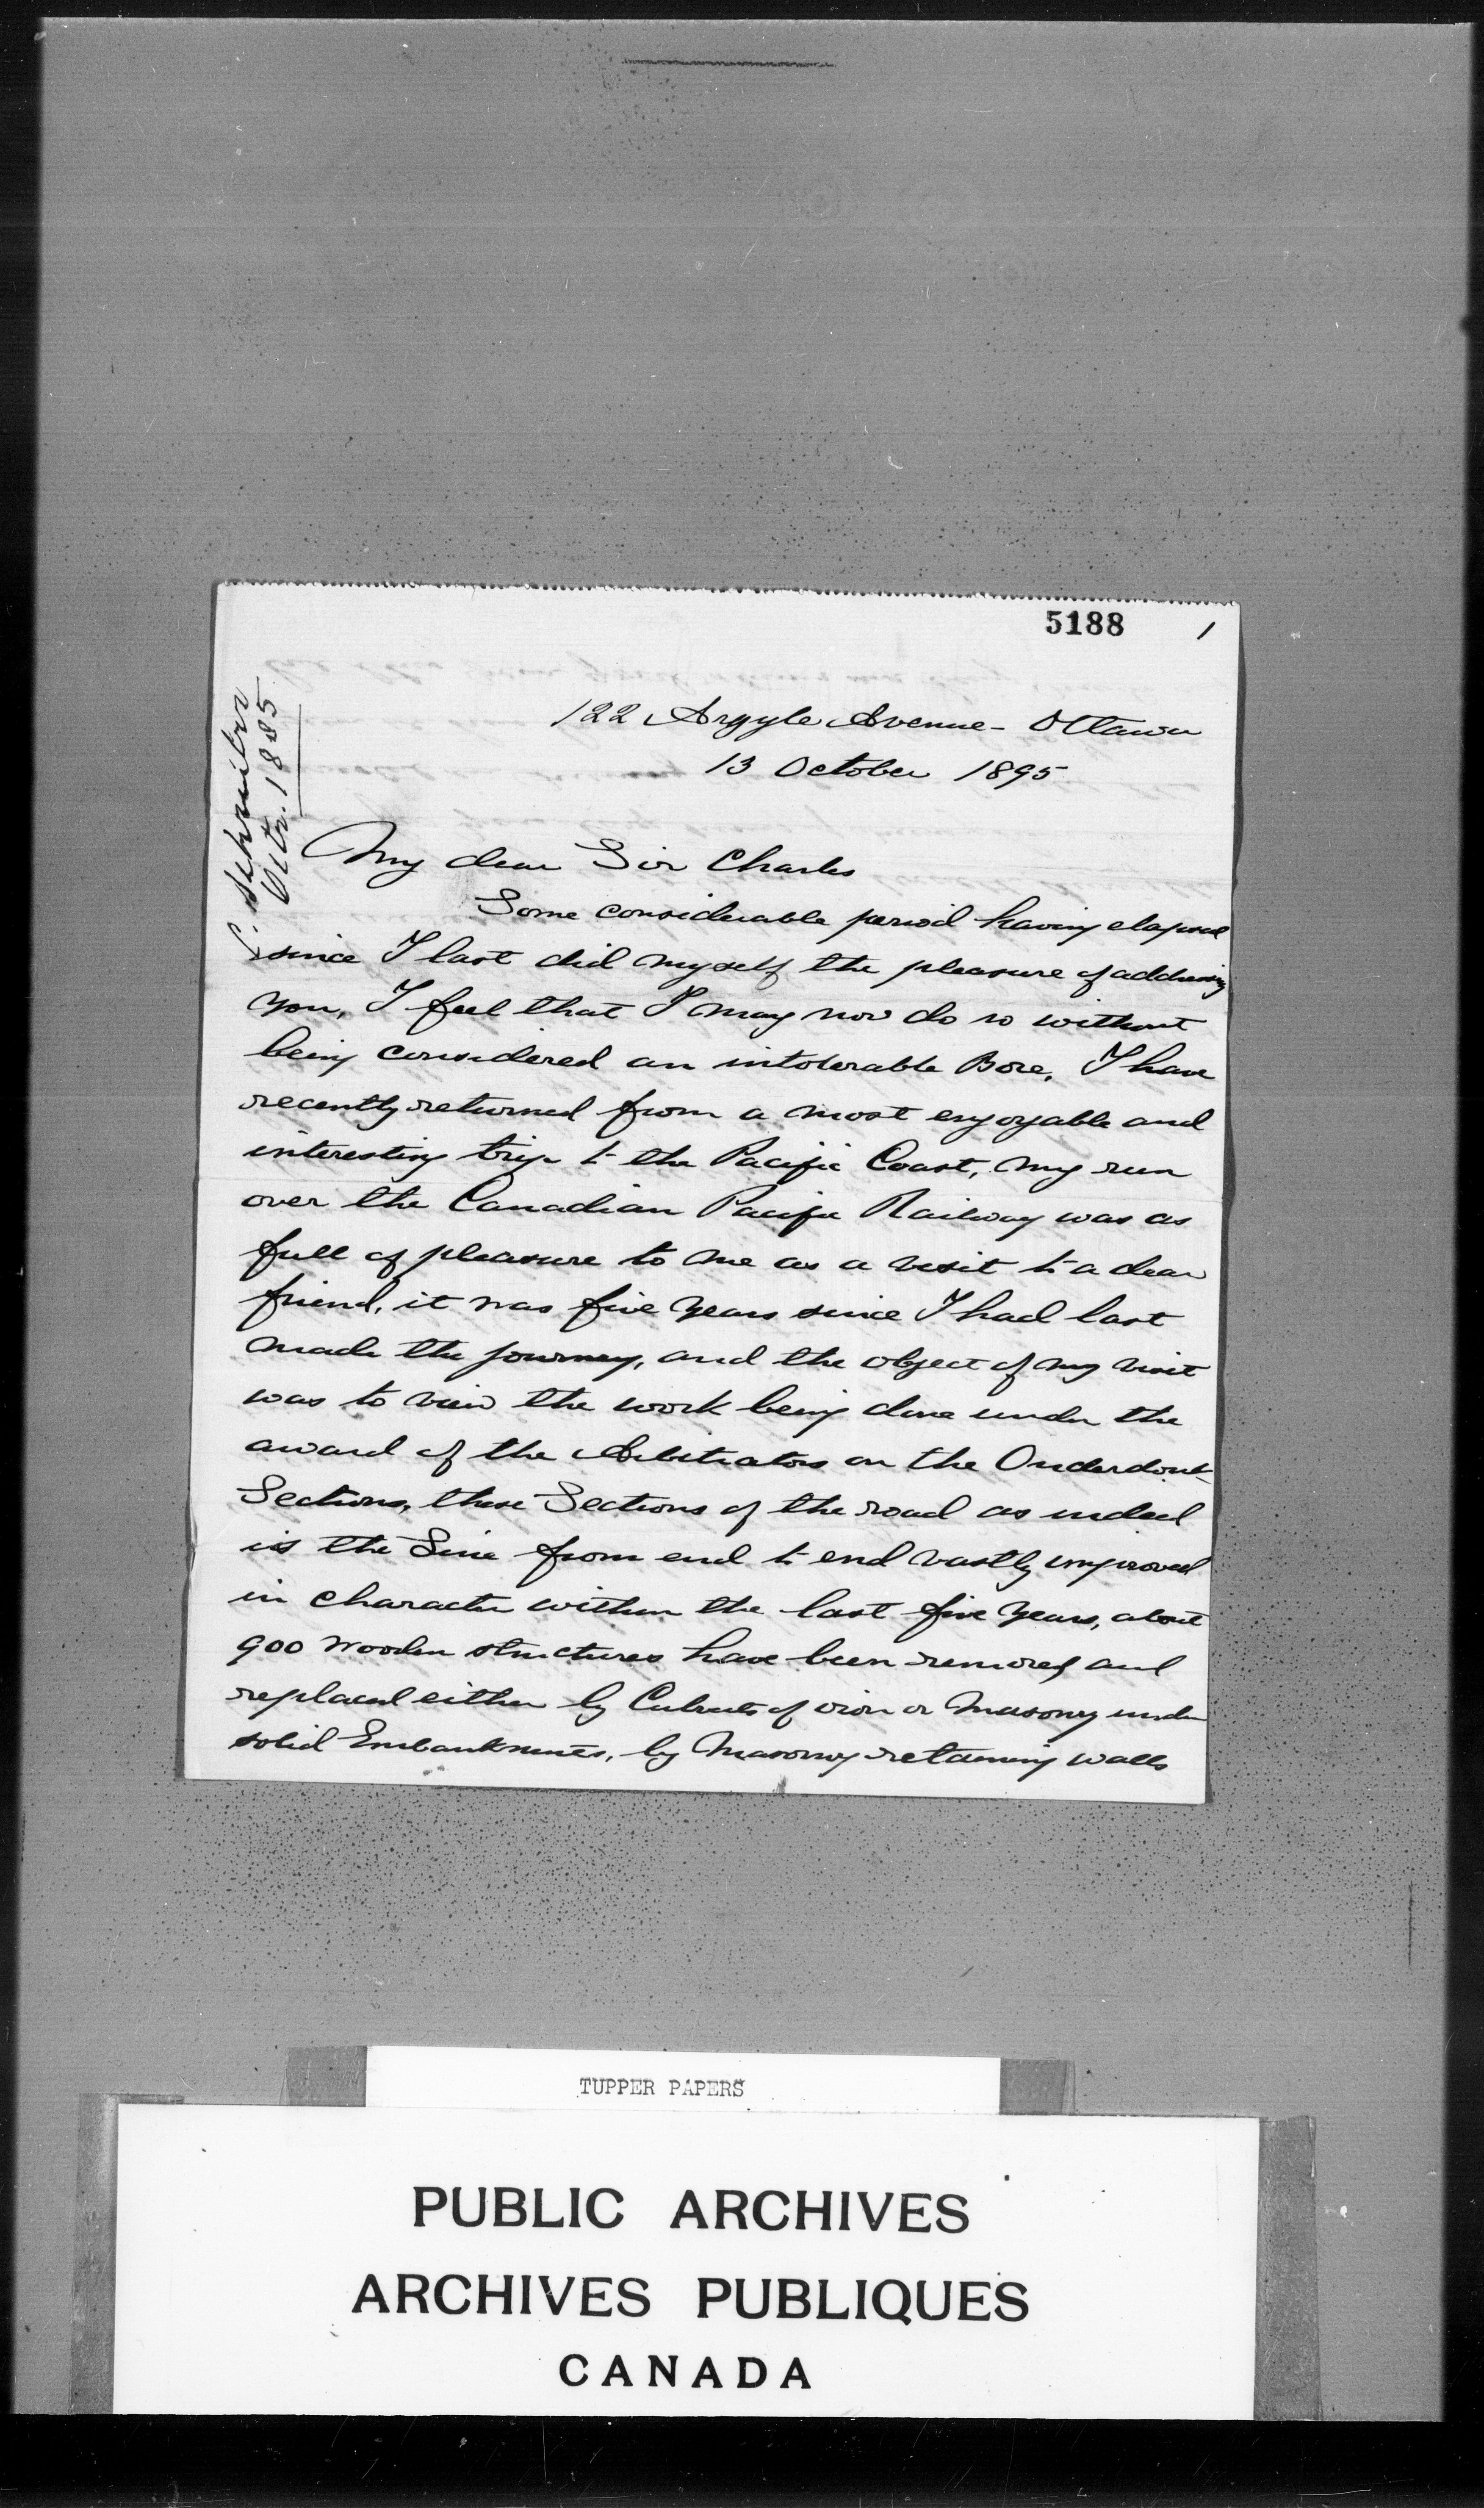 5188 1
C. Schreiber
Octr. 1885
122 Argyle Avenue - Ottawa
13 October 1895
My dear Sir Charles
Some considerable period having elapsed
since I last did myself the pleasure of addressing
you, I feel that I may now do so without
being considered an intolerable Bore, I have
recently returned from a most enjoyable and
interesting trip to the Pacific Coast, my run
over the Canadian Pacific Railway was as
full of pleasure to me as a visit to a dear
friend, it was five years since I had last
made the journey, and the object of my visit
was to view the work being done under the
award of the Arbitrators on the Onderdonk
Sections, these Sections of the road as indeed
is the Line from end to end vastly improved
in character within the last five years, about
900 wooden structures have been removed and
replaced either by Culverts of iron or Masonry under
solid Embankments, by Masonry retaining walls
TUPPER PAPERS
PUBLIC ARCHIVES
ARCHIVES PUBLIQUES
CANADA